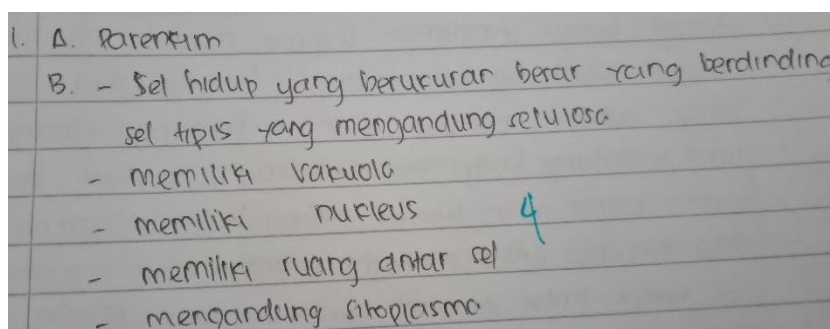 1. A. Parenkim
B. - Sel hidup yang berukuran besar yang berdinding
sel tipis yang mengandung selulosa
- memiliki vakuola
- memiliki nukleus 4
- memiliki ruang antar sel
- mengandung sitoplasma